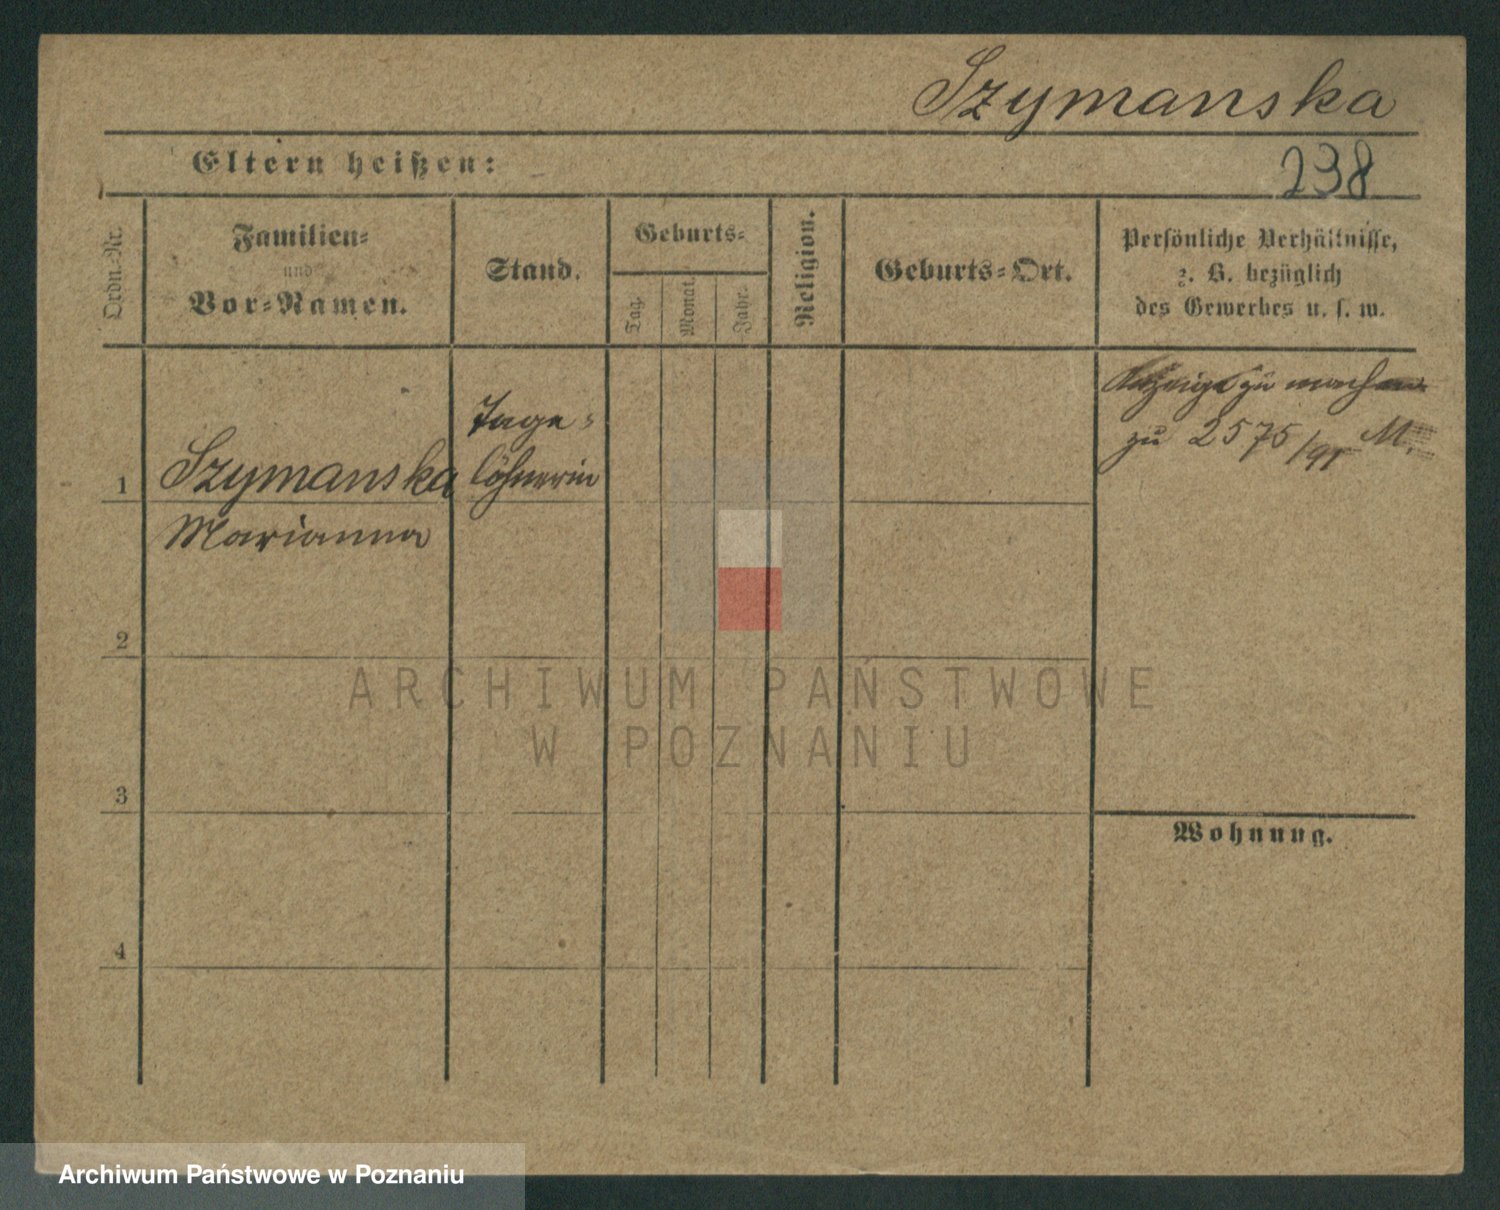 Szymanska
Eltern heißen:
238
Ordn.-Nr.
Familien-
und
Vor-Namen.
Stand.
Geburts-
Tag.
Monat.
Jahr.
Religion.
Geburts-Ort.
Persönliche Verhältnisse,
z. B. bezüglich
des Gewerbes u. s. w.
1
Szymanska
Marianna
Tage-
löhnerin
Anzeige zu machen
zu 2575/91 M.
2
3
4
Wohnung.
ARCHIWUM PAŃSTWOWE
W POZNANIU
Archiwum Państwowe w Poznaniu